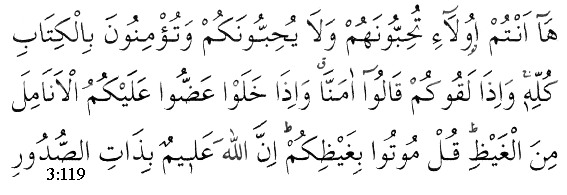 هَآ اَنْتُمْ اُولَآءِ تُحِبُّونَهُمْ وَلَا يُحِبُّونَكُمْ وَتُؤْمِنُونَ بِالْكِتَابِ
كُلِّهٖۚ وَاِذَا لَقُوكُمْ قَالُوٓا اٰمَنَّاۗ وَاِذَا خَلَوْا عَضُّوا عَلَيْكُمُ الْاَنَامِلَ
مِنَ الْغَيْظِۜ قُلْ مُوتُوا بِغَيْظِكُمْۜ اِنَّ اللّٰهَ عَلٖيمٌ بِذَاتِ الصُّدُورِ
3:119